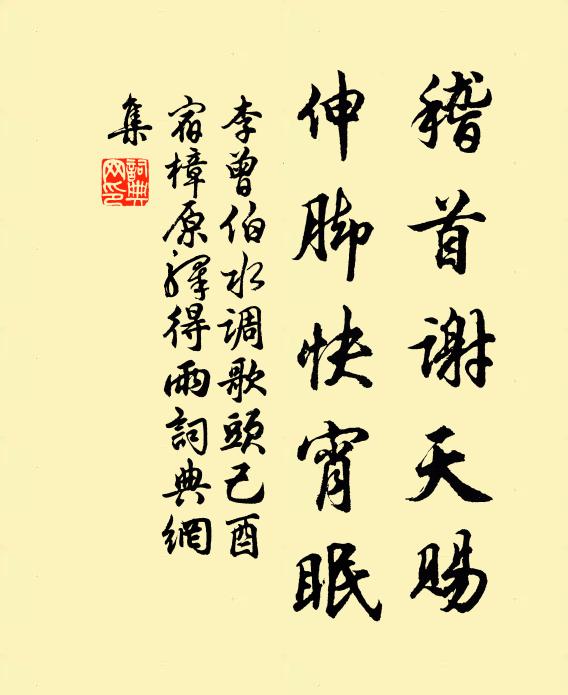 稽首謝天賜
伸脚快宵眠
李曾伯水调歌頭己酉
宿樟原驛得雨詞典網
集
詞典網印